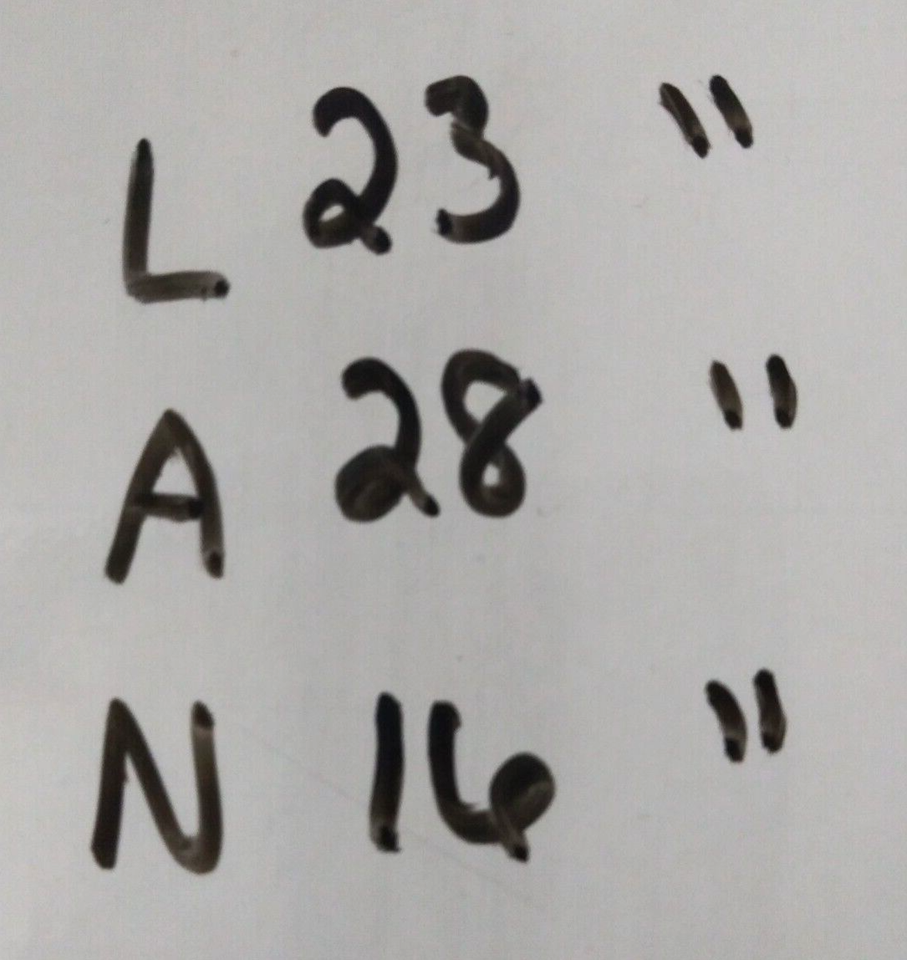 L 23 "
A 28 "
N 16 "